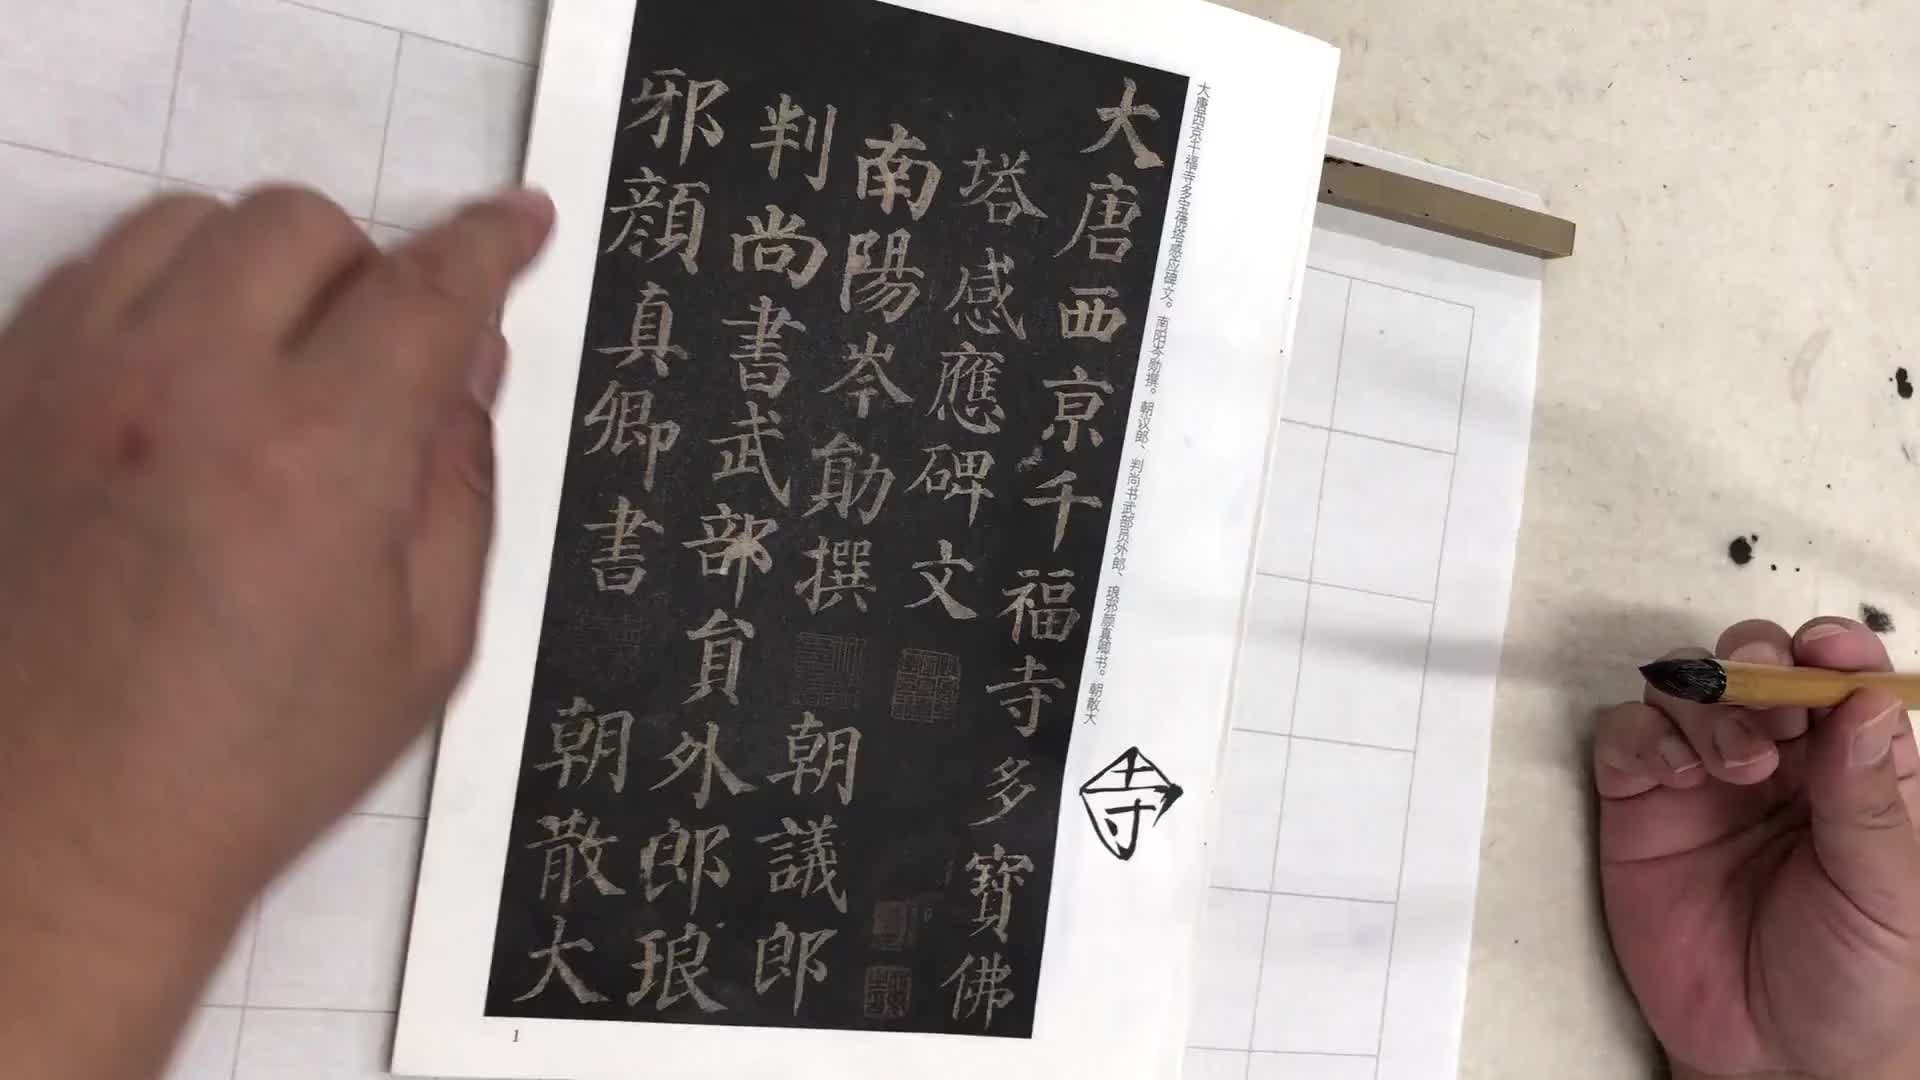 大唐西京千福寺多寶佛
塔感應碑文
南陽岑勛撰
朝議郎
判尚書武部員外郎琅
邪顔真卿書
朝散大
大唐西京千福寺多宝佛塔感应碑文。南阳岑勋撰。朝议郎、判尚书武部员外郎、琅邪颜真卿书。朝散大
寺
1